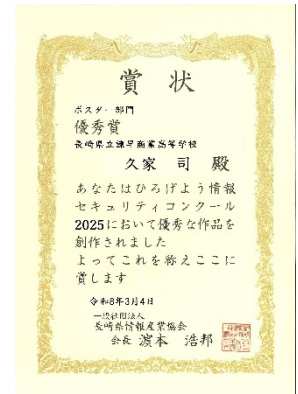 賞状
ポスター部門
優秀賞
長崎県立諫早商業高等学校
久家 司 殿
あなたはひろげよう情報
セキュリティコンクール
2025において優秀な作品を
創作されました
よってこれを称えここに
賞します
令和8年3月4日
一般社団法人
長崎県情報産業協会
会長 濵本 浩邦